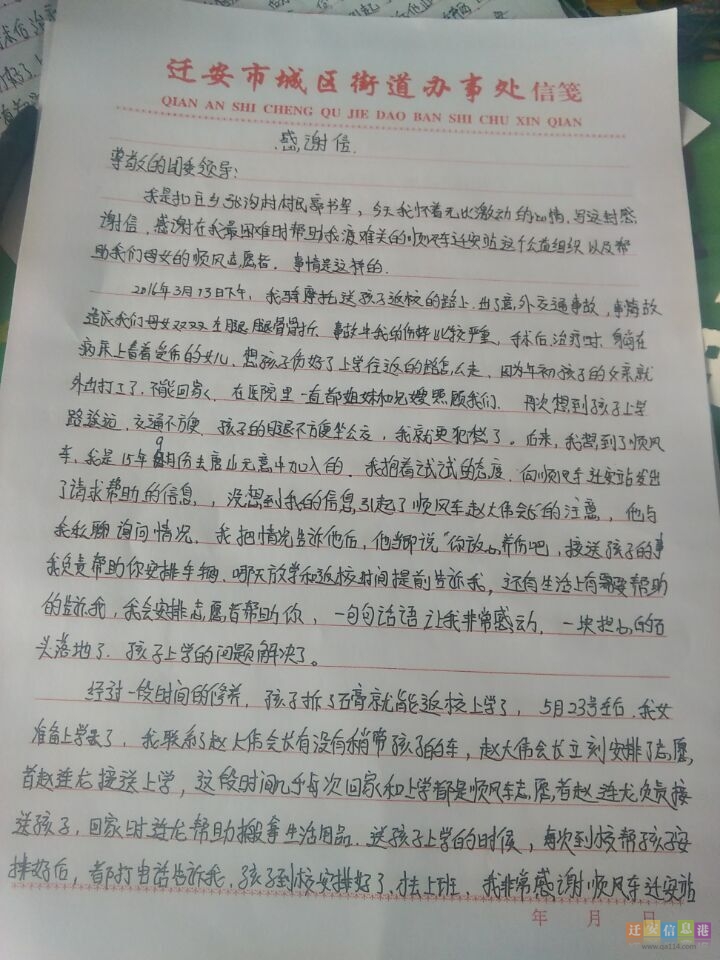 迁安市城区街道办事处信笺
QIAN AN SHI CHENG QU JIE DAO BAN SHI CHU XIN QIAN
感谢信
尊敬的团委领导:
我是扣庄乡张沟村村民郭书军,今天我怀着无比激动的心情,写这封感
谢信,感谢在我最困难时帮助我渡难关的顺风车迁安站这个公益组织以及帮
助我们母女的顺风志愿者,事情是这样的.
2016年3月13日下午,我骑摩托送孩子返校的路上.出了意外交通事故,事故
造成我们母女双双左腿腿骨骨折.事故中我的伤势比较严重,手术后治疗时.躺在
病床上看着受伤的女儿,想孩子伤好了上学往返的路怎么走,因为年初孩子的父亲就
外出打工了,不能回家,在医院里一直都姐妹和兄嫂照顾我们.再次想到孩子上学
路途远,交通不方便.孩子的腿不方便坐公交,我就更犯愁了。后来,我想到了顺风
车,我是15年9月份去唐山无意中加入的.我抱着试试的态度.向顺风车迁安站发出
了请求帮助的信息,,没想到我的信息引起了顺风车赵大伟会长的注意,他与
我私聊询问情况.我把情况告诉他后,他当即说"你放心养伤吧,接送孩子的事
我负责帮助你安排车辆.哪天放学和返校时间提前告诉我,还有生活上有需要帮助
的告诉我,我会安排志愿者帮助你,一句句话语让我非常感动.一块担心的石
头落地了.孩子上学的问题解决了。
经过一段时间的修养,孩子拆了石膏就能返校上学了,5月23号左右,我女
准备上学去了,我联系了赵大伟会长有没有稍带孩子的车,赵大伟会长立刻安排了志愿
者赵连龙接送上学,这段时间几乎每次回家和上学都是顺风车志愿者赵连龙负责接
送孩子,回家时连龙帮助搬拿生活用品.送孩子上学的时候,每次到校帮孩子安
排好后,都打电话告诉我,孩子到校安排好了.才去上班.我非常感谢顺风车迁安站
年 月 日
迁安信息港
www.qa114.com